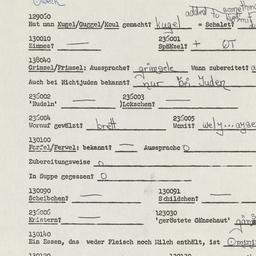 added to something
129060
Hat man Kugel/Guggel/Koul gemacht? kugel = Schalet?
130010 236001
Zimmes? — Spüßkel? + GT
138040
Grimsel/Primsel: Aussprache? grimsele Wann zubereitet?
Auch bei Nichtjuden bekannt? nur bei Juden
236002 236003
'Nudeln' — Lokschen? —
236004 236005
Worauf gewälzt? brett Womit?
130100
Farfel/Ferwel: bekannt? — Aussprache 0
Zubereitungsweise 0
In Suppe gegessen? 0
130090 130091
Scheibchen? — Schildchen? —
236006 123030
Knistern? — 'geröstete Gänsehaut'
130140
Ein Essen, das weder Fleisch noch Milch enthält, ist